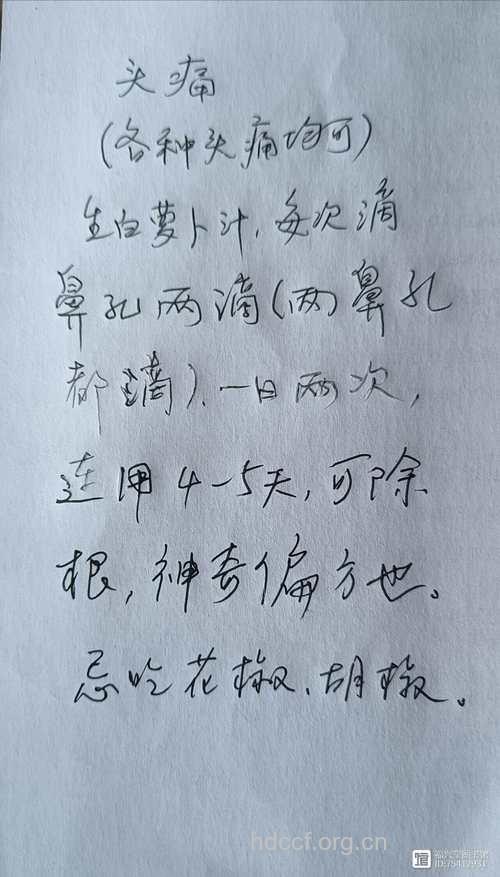 头痛
(各种头痛均可)
生白萝卜汁,每次滴
鼻孔两滴(两鼻孔
都滴)、一日两次,
连用4-5天,可除
根,神奇偏方也。
忌吃花椒、胡椒。
hdccf.org.cn